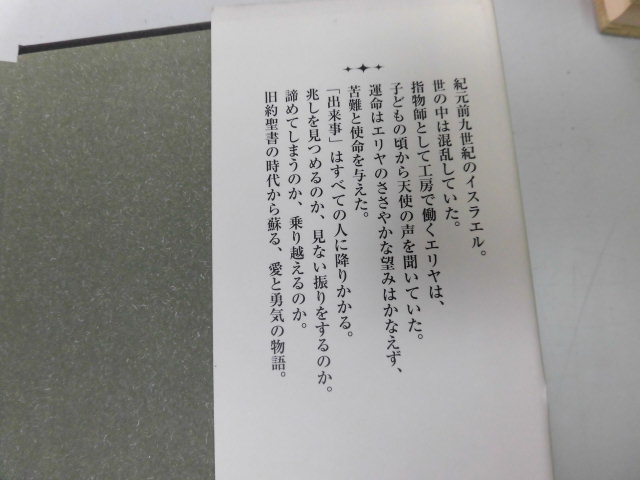 紀元前九世紀のイスラエル。
世の中は混乱していた。
指物師として工房で働くエリヤは、
子どもの頃から天使の声を聞いていた。
運命はエリヤのささやかな望みはかなえず、
苦難と使命を与えた。
「出来事」はすべての人に降りかかる。
兆しを見つめるのか、見ない振りをするのか。
諦めてしまうのか、乗り越えるのか。
旧約聖書の時代から蘇る、愛と勇気の物語。